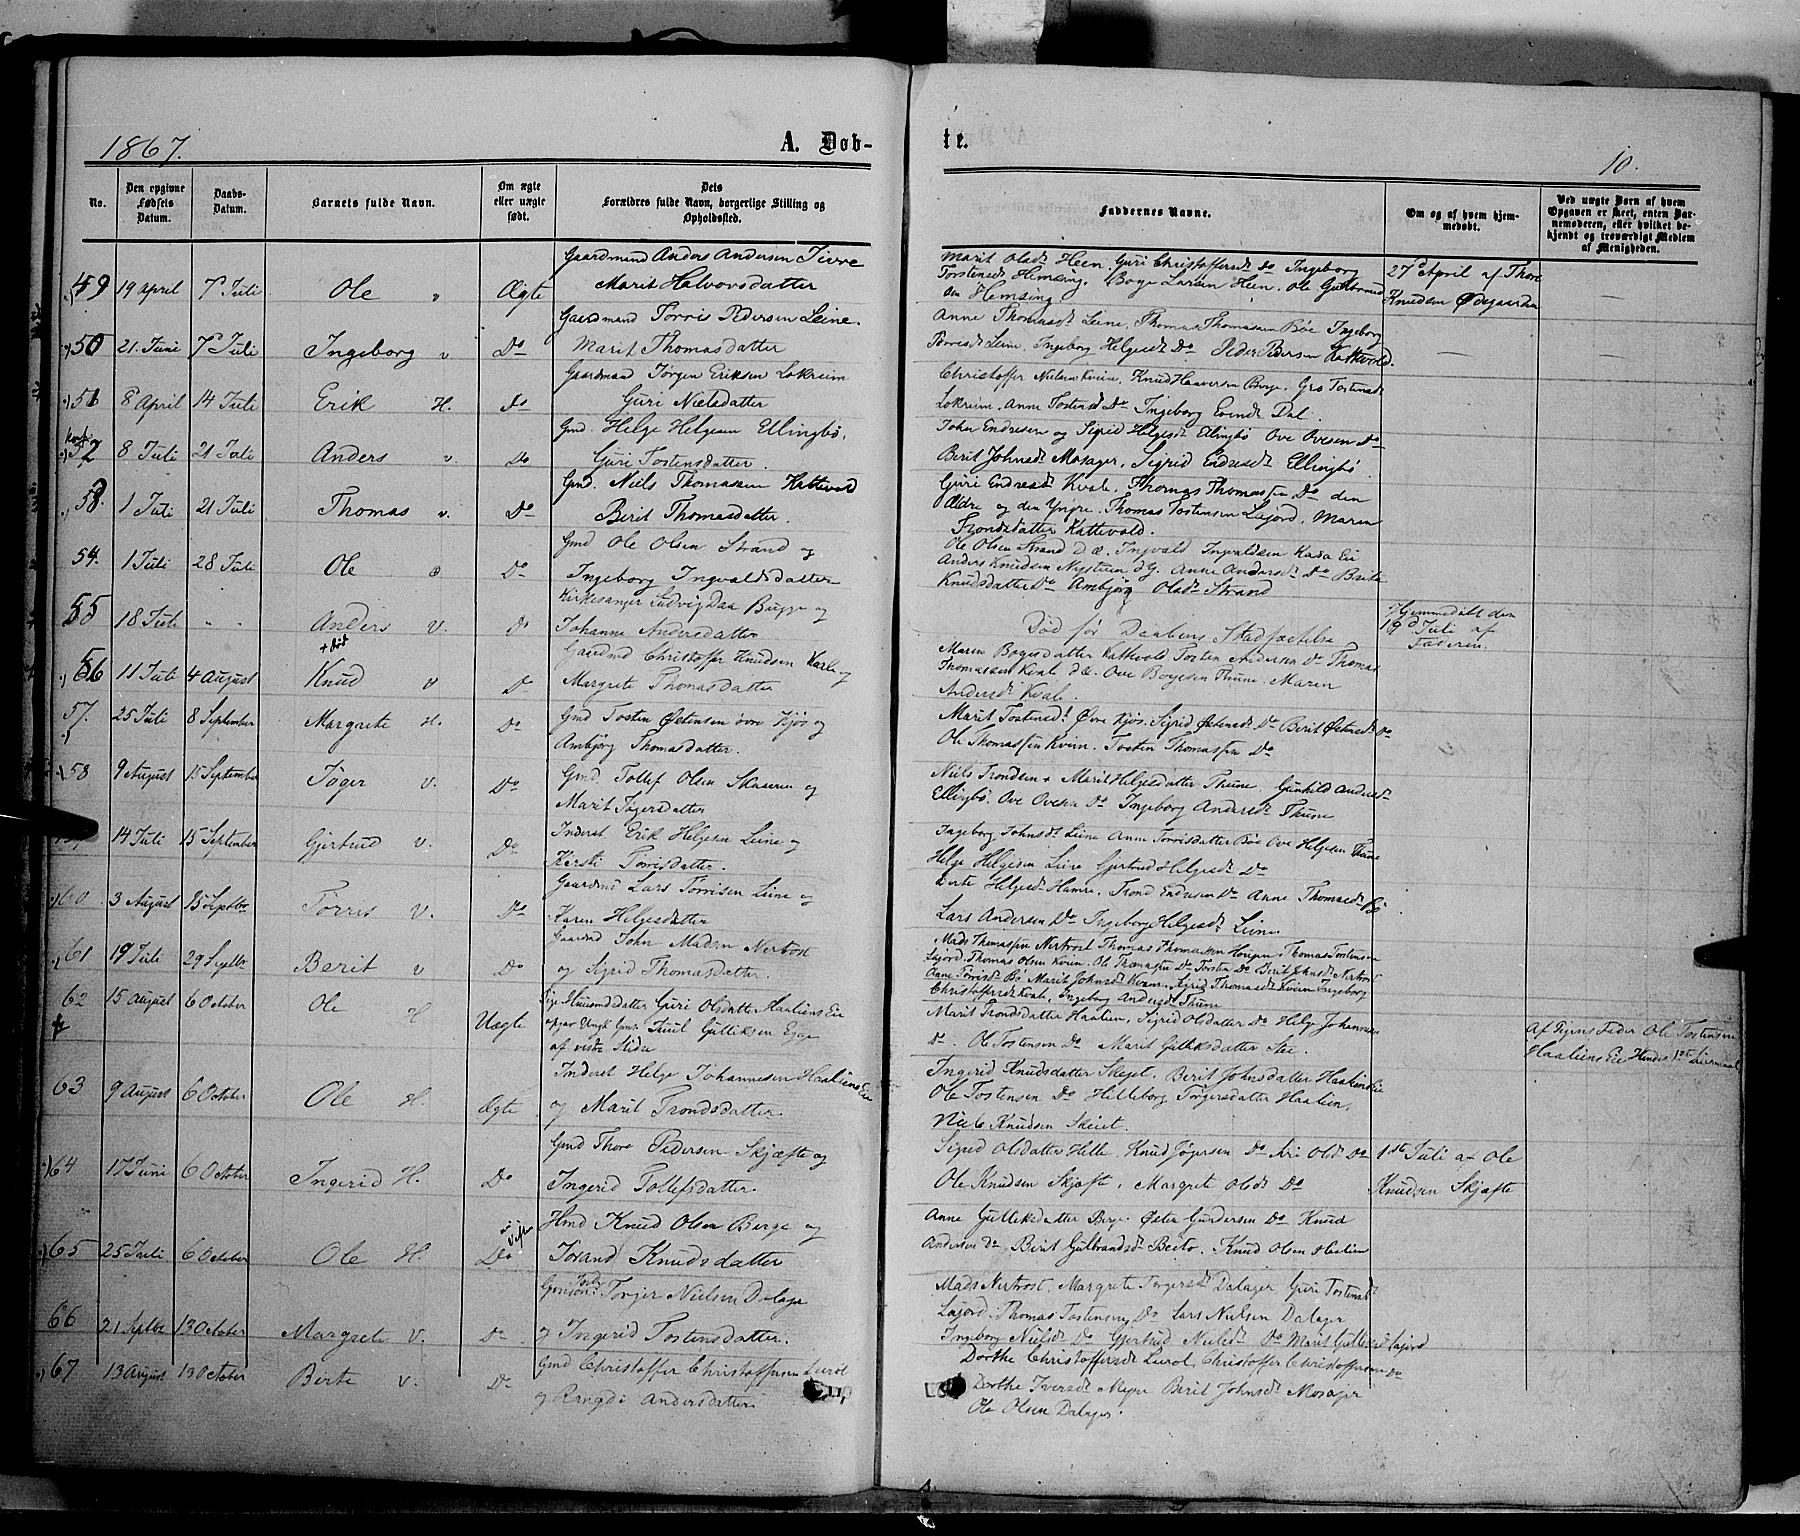 1867.
A. Døb-
te.
10.
No.
Den opgivne Fødsels Datum.
Daabs-Datum.
Barnets fulde Navn.
Om ægte eller uægte født.
Dets Forældres fulde Navn, borgerlige Stilling og Opholdssted.
Faddernes Navne.
Om og af hvem hjemmedøbt.
Ved uægte Børn af hvem Opgaven er skeet, enten Barnemoderen, eller hvilket bekjendt og troværdigt Medlem af Menigheden.
Gaardmand Anders Andersen
49 19 April 7 Juli Ole v Ægte Marit Halvorsdatter
Marit Olsdt Heen, Guri Christoffersdt Do Ingeborg
Torstensdt Hemsing, Boye Larsen Heen, Ole Gulbrand
sen Hemsing
27d April af Thore
Knudsen Ødegaarden
Gaardmand Torris Pedersen Leine.
50 21. Juni 7 Juli Ingeborg v Do Marit Thomasdatter
Anne Thomasdt Leine, Thomas Thomasen Bøe Ingeborg
Torrisdt Leine, Ingeborg Helgesdt Do Peder Pedersen Kattevold.
Gaardmand Jørgen Eriksen Lokreim
51 8 April 14 Juli Erik H. Do Guri Nielsdatter
Christoffer Nielsen Kvien, Knud Haaversen Berge, Gro Tostensdt
Lokreim, Anne Tostensdt Do Ingeborg Evindt Dal.
Gmd. Helge Helgesen Ellingbø.
52 8 Juli 21 Juli Anders v. Do Guri Tostensdatter.
John Endresen og Sigrid Helgesdt Ellingbø Ove Ovesen Do
Berit Johnsdt Mosager, Sigrid Endresdt Ellingbø
Gmd. Niels Thomasen Kattevold
53. 1 Juli 21 Juli Thomas v. Do Berit Thomasdatter.
Guri Endresdt Kvale, Thomas Thomassen Do den
Ældre og den Yngre. Thomas Tostensen Lajord, Maren
Trondsdatter Kattevold.
Gmd Ole Olsen Strand og
54. 1 Juli 28 Juli Ole Do Ingeborg Ingvaldsdatter
Ole Olsen Strand d. Æ. Ingvald Ingvaldsen Kasa Eie
Anders Knudsen Nystuen d. G. Anne Andersdt Do Brite
Knudsdatter Do Ambjørg Olsdt Strand
Kirkesanger Ludvig Daa Bugge og
55 18 Juli " " Anders v. Do Johanne Andersdatter
+ død
Død før Daabens Stadfæstelse
Hjemmedøbt den
19d Juli af
Faderen.
Gaardmd Christoffer Knudsen Kvale og
56 11 Juli 4 August Knud v Do Margrete Thomasdatter
Maren Boyesdatter Kattevold Tosten Andersen Do Thomas
Thomassen Kvale d. Æ. Ove Boyesen Thune. Maren
Andersdt Kvale.
57. 25 Juli 8 September Margrete H. Do Gmd Tosten Østensen øvre Kjøs og
Ambjørg Thomasdatter.
Marit Tostensdt Øvre Kjøs. Sigrid Østensdt Do Berit Østensdt Do
Ole Thomassen Kvien. Tosten Thomassen Do
58 9 August 15 September Tøger v. Do Gmd. Tollef Olsen Skaseren og
Marit Tøgersdatter
Niels Trondsen + Marit Helgesdatter Thune, Gunhild Andersdt
Ellingbø. Ove Ovesen Do Ingeborg Andersdt Thune
14 Juli 15 September Gjertrud v. Do Inderst Erik Helgesen Leine og
Kersti Torrisdatter.
Ingeborg Johnsdt Leine Anne Torrisdatter Bøe Ove Helgesen Thune
Helge Helgesen Leine Gjertrud Helgesdt Do
60 3 August 15 Septbr Torris v. Do Gaardmd Lars Torrisen Leine og
Karen Helgesdatter
Berte Helgesdt Hamre. Trond Endresen Do Anne Thomasdt Bø
Lars Andersen Do Ingeborg Helgesdt Leine.
61 19 Juli 29 Septbr Berit v Do Gaardmd John Madsen Nertrost
og Sigrid Thomasdatter.
Mads Thomassen Nertrost Thomas Thomassen Hougen, Thomas Tostensen
Lajord, Thomas Olsen Kvien. Ole Thomassen Do Tosten Do Berit Johnsdt Nertrost
Anne Torrisdt Bø Marit Johnsdt Kvam. Sigrid Thomasdt Kvien Ingeborg
Christoffersdt Kvale, Ingeborg Andersdt Thune
62 15 August 6 October Ole H Uægte Pige Huusmdsdatter Guri Olsdatter Haaliens Eie
opgav Ungk. Gmd. Juul Gulliksen Egge
af vestre Slidre
Marit Trondsdatter Haalien, Sigrid Olsdatter Do Helge Johannesen
Do. Ole Tostensen Do Marit Gulliksdatter See
Af Pigens Fader Ole Tostensen
Haaliens Eie Hendes 1ste Leiermaal
63 9 August 6 October Ole H Ægte Inderst Helge Johannesen Haaliens Eie
og Marit Trondsdatter.
Ingerid Knudsdatter Skejet, Berit Johnsdatter Haaliens Eie
Ole Tostensen Do Hilleborg Tøgersdatter Haalien,
Niels Knudsen Skeiet.
64 17 Juni 6 October Ingerid H. Do Gmd Thore Pedersen Skjæfte og
Ingerid Tollefsdatter.
Sigrid Olsdatter Helle, Knud Jøgersen Do Ari Olsdt Do
Ole Knudsen Skjæft, Margrete Olsdt Do
1ste Juli af Ole
Knudsen Skjæfte
65 25 Juli 6 October Ole H Do Hmd Knud Olsen Berge og
Jorand Knudsdatter
Anne Gulliksdatter Berge. Østen Gundersen Do Knud
Andersen Do, Berit Gulbrandsdt Beito. Knud Olsen Haalien
66 21 Septbr 13 October Margrete v. Do Torjer Nielsen Dalager
og Ingerid Tostensdatter.
Mads Nertrost, Margrete Torgersdt Dalager Guri Tostensdt
Lajord. Thomas Tostensen Do Lars Nielsen Dalager
Ingeborg Nielsdt Do Gjertrud Nielsdt Do Marit Gulliksdt Lajord
67 13 August 13 October Birte v. Do Gmd Christoffer Christoffersen Lurol
og Rangdi Andersdatter
Dorthe Christoffersdt Lurol, Christoffer Christoffersen Do
Dorthe Iversdt Meyer Berit Johnsdt Mosager
Ole Olsen Dalager.